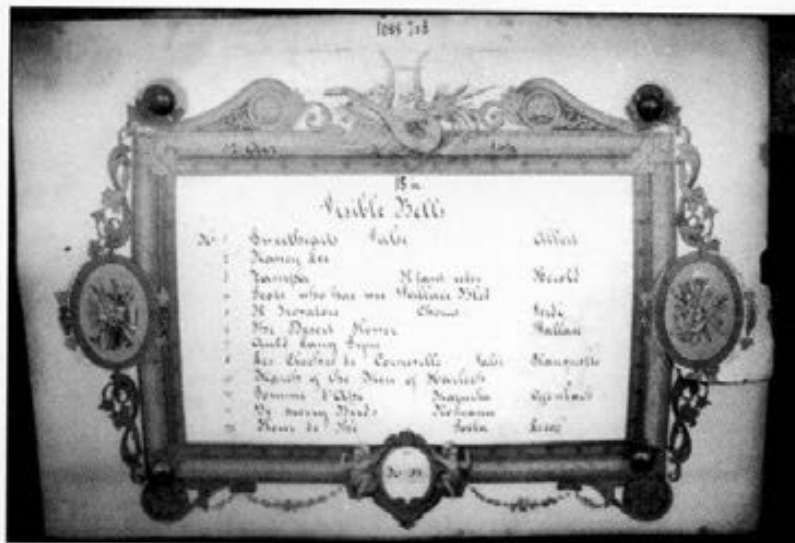 13 in
Visible Bells
No 1 Sweethearts Valse Albert
2 Nancy Lee
3 Zampa Herold
4 Scots who hae wee Wallace bled
5 Il Trovatore Chorus Verdi
6 The Desert Flower Wallace
7 Auld Lang Syne
8 Les Cloches de Corneville Valse Planquette
March of the Men of Harlech
Pomme d'Api Offenbach
My merry Birds Romance
Fleur de Thé Polka Lecoq